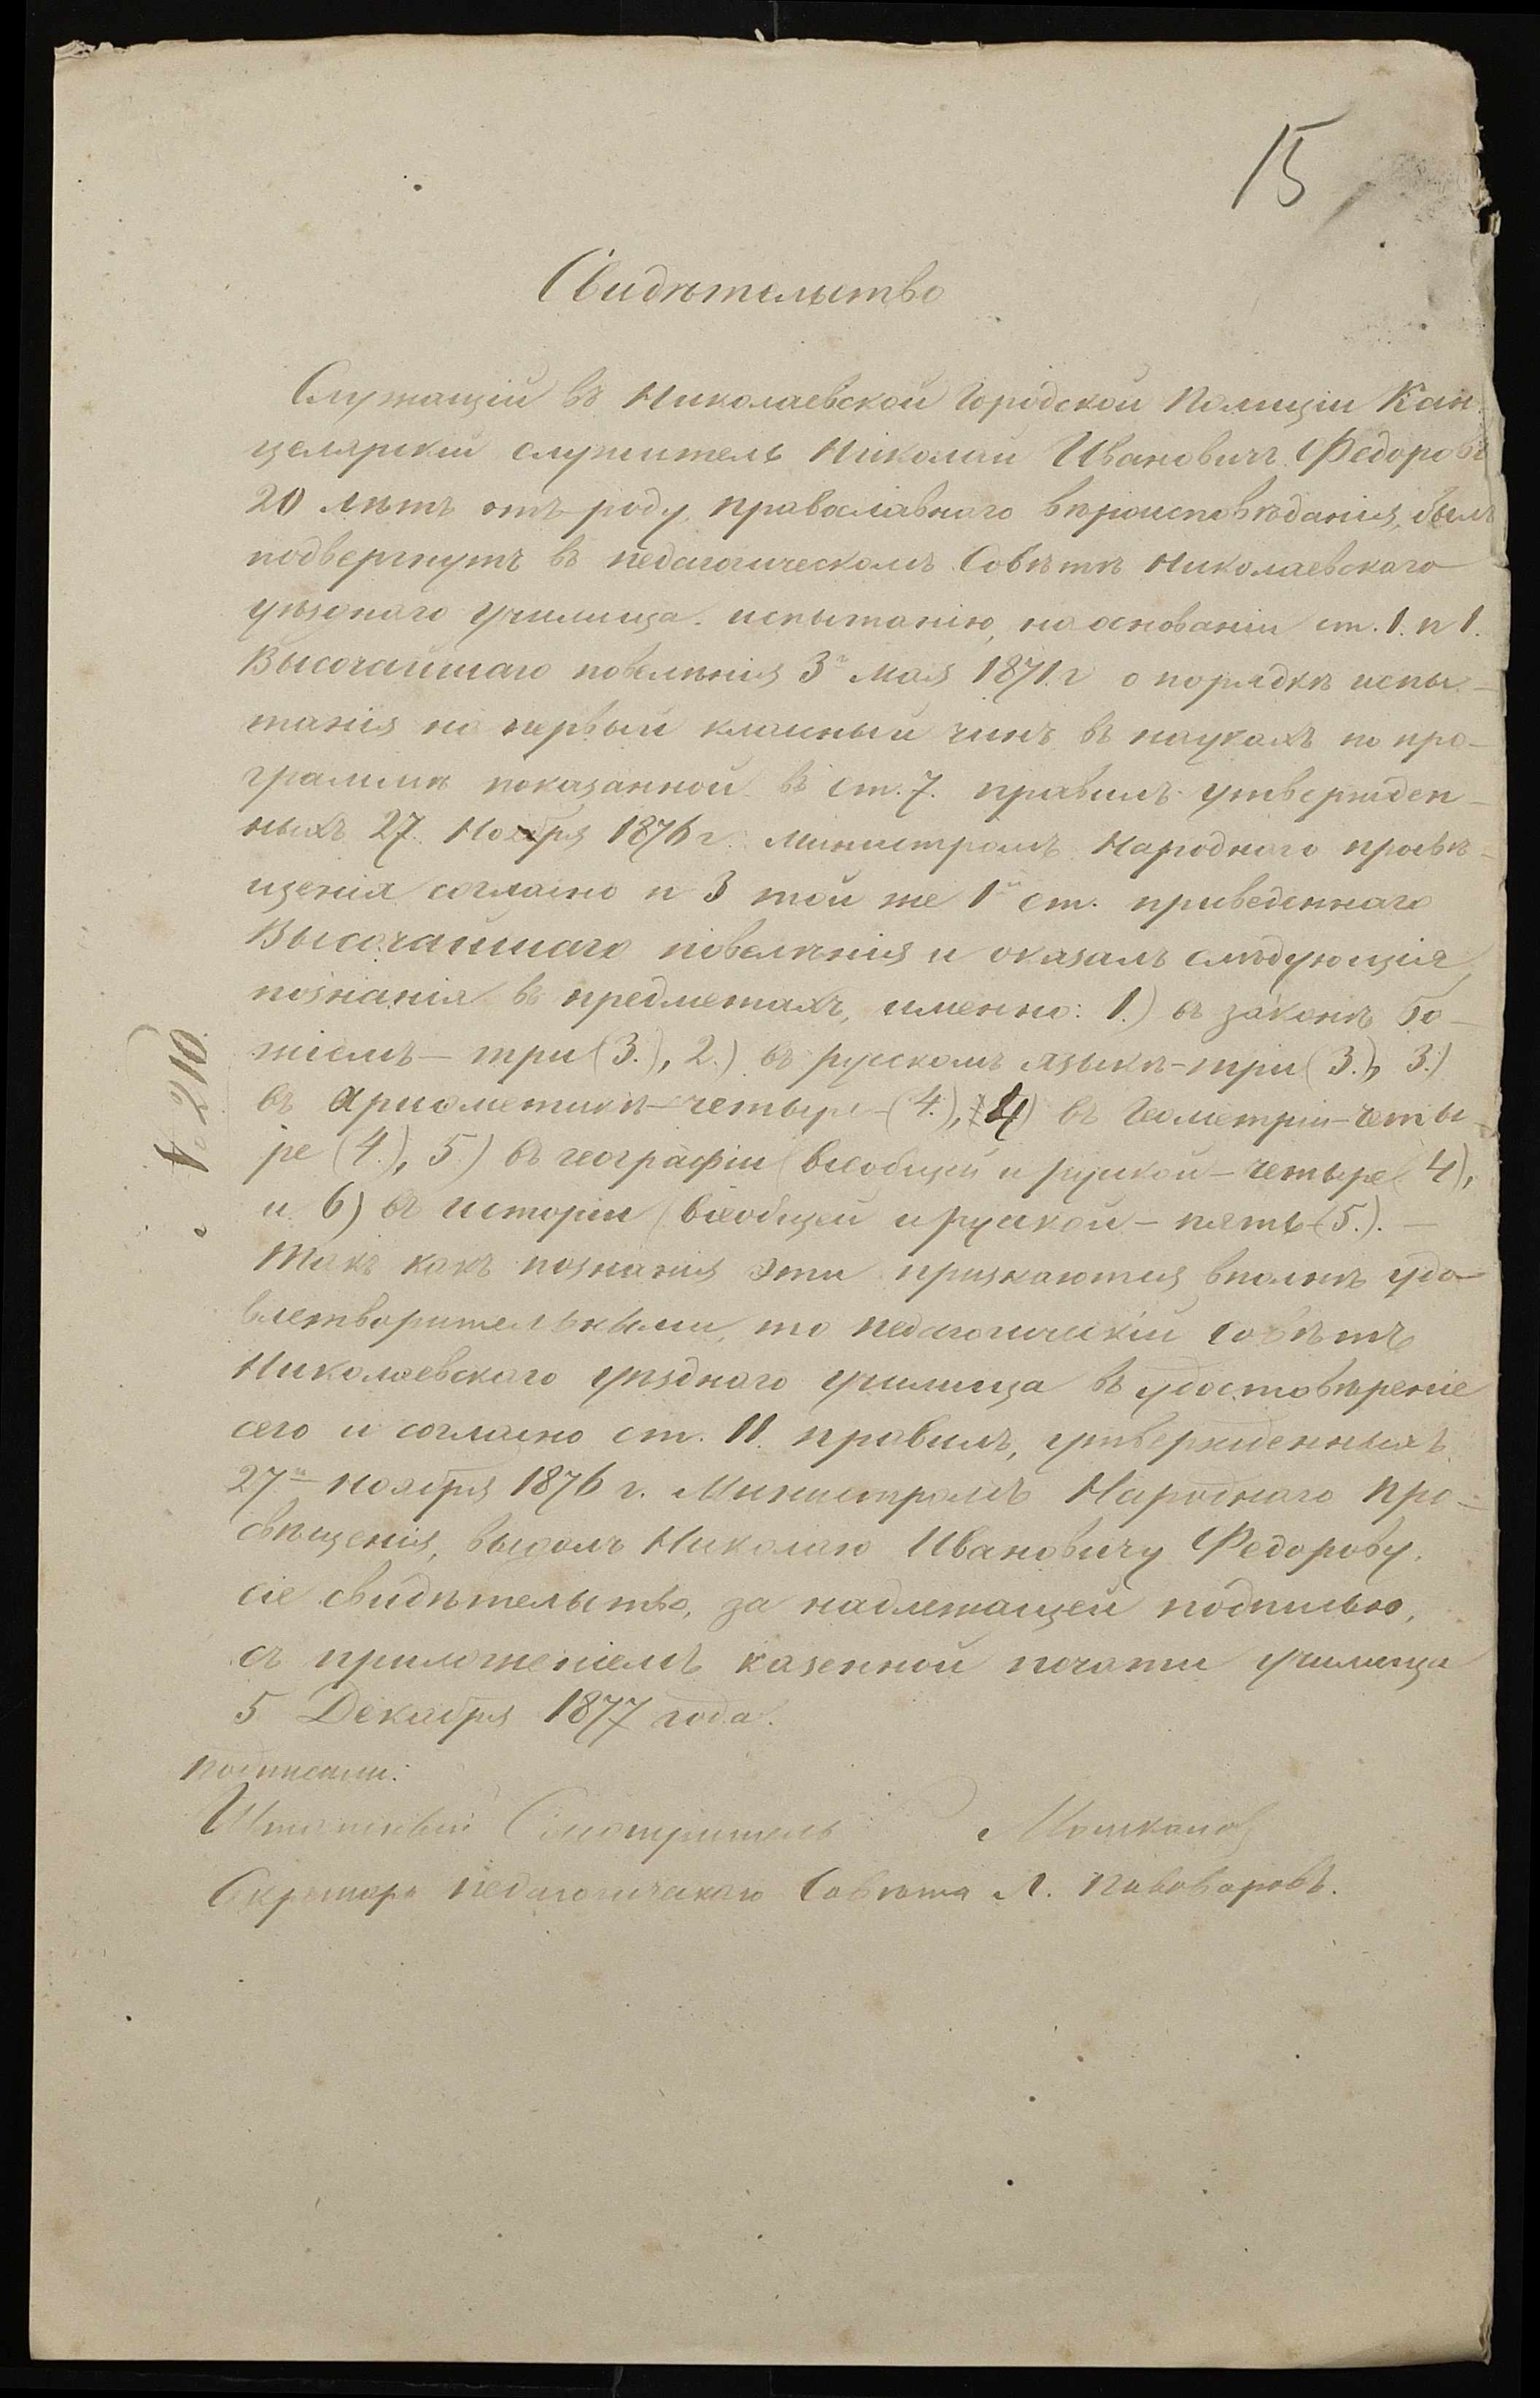 15
Свидѣтельство
Служащій въ Николаевской Городской Полиціи Кан-
целярскій служитель Николай Ивановичъ Федоровъ
20 лѣтъ отъ роду, православнаго вѣроисповѣданія, былъ
подвергнутъ въ педагогическомъ Совѣтѣ Николаевскаго
уѣзднаго училища испытанію, на основаніи ст. 1. п 1.
Высочайшаго повелѣнія 3го Мая 1871 г о порядкѣ испы-
танія на первый классный чинъ въ наукахъ по про-
граммѣ показанной въ ст. 7. правилъ утвержден-
ныхъ 27. Ноября 1876 г. Министромъ Народнаго просвѣ-
щенія, согласно п 3 той же 1й ст. приведеннаго
Высочайшаго повелѣнія и оказалъ слѣдующія
познанія въ предметахъ, именно: 1.) въ законѣ Бо-
жіемъ - три (3.), 2.) въ русскомъ языкѣ - три (3.), 3.)
въ Ариѳметикѣ - четыре - (4.), 4) въ Геометріи - четы-
ре (4.), 5.) въ географіи (всеобщей и руской - четыре (4),
и 6) въ исторіи (всеобщей и руской - пять (5.). -
Такъ какъ познанія эти признаются вполнѣ удо-
влетворительными, то педагогическій Совѣтъ
Николаевскаго уѣзднаго училища въ удостовѣреніе
сего и согласно ст. 11. правилъ, утвержденныхъ
27го ноября 1876 г. Министромъ Народнаго Про-
свѣщенія, выдалъ Николаю Ивановичу Федорову,
сіе свидѣтельство, за надлежащей подписью,
съ приложеніемъ казенной печати училища
5 Декабря 1877 года.
Подписали:
Штатный Смотритель
Секретарь педагогическаго Совѣта Л. Пивоваровъ.
№ 210.